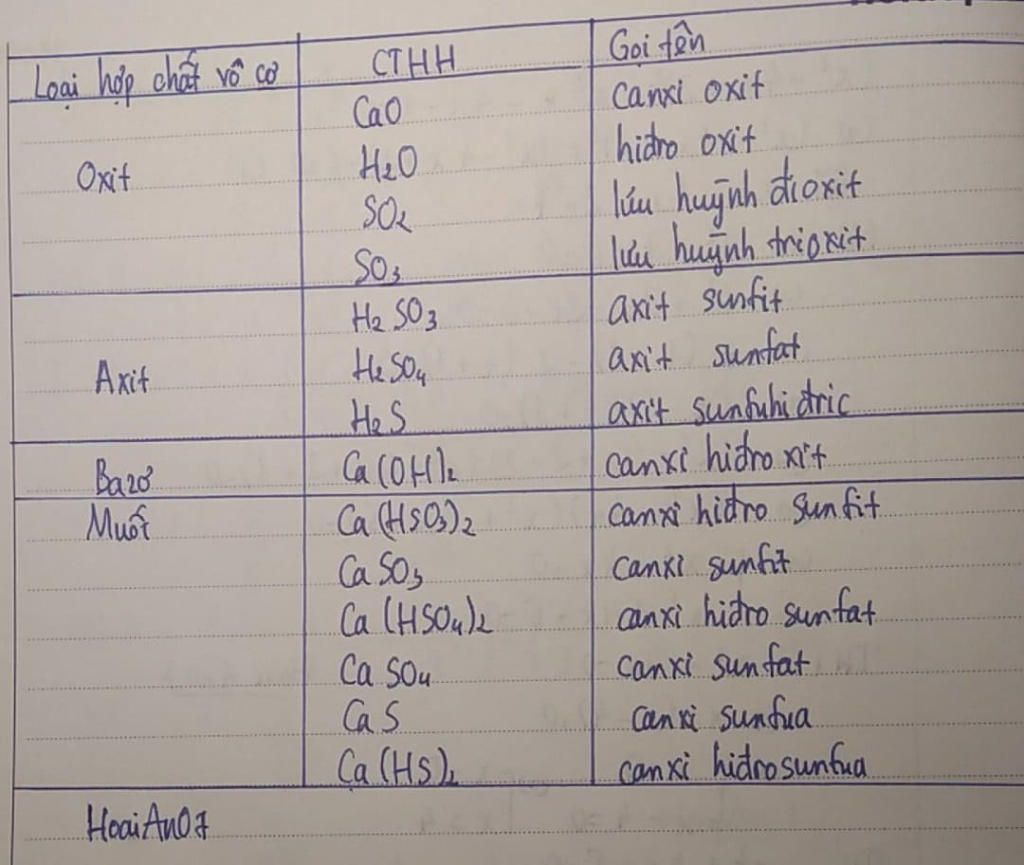 Loại hợp chất vô cơ CTHH Gọi tên
CaO canxi oxit
Oxit H2O hiđro oxit
SO2 lưu huỳnh đioxit
SO3 lưu huỳnh trioxit
H2SO3 axit sunfit
Axit H2SO4 axit sunfat
H2S axit sunfuhiđric
Bazơ Ca(OH)2 canxi hiđroxit
Muối Ca(HSO3)2 canxi hiđro sunfit
CaSO3 canxi sunfit
Ca(HSO4)2 canxi hiđro sunfat
CaSO4 canxi sunfat
CaS canxi sunfua
Ca(HS)2 canxi hiđrosunfua
HoaiAn07